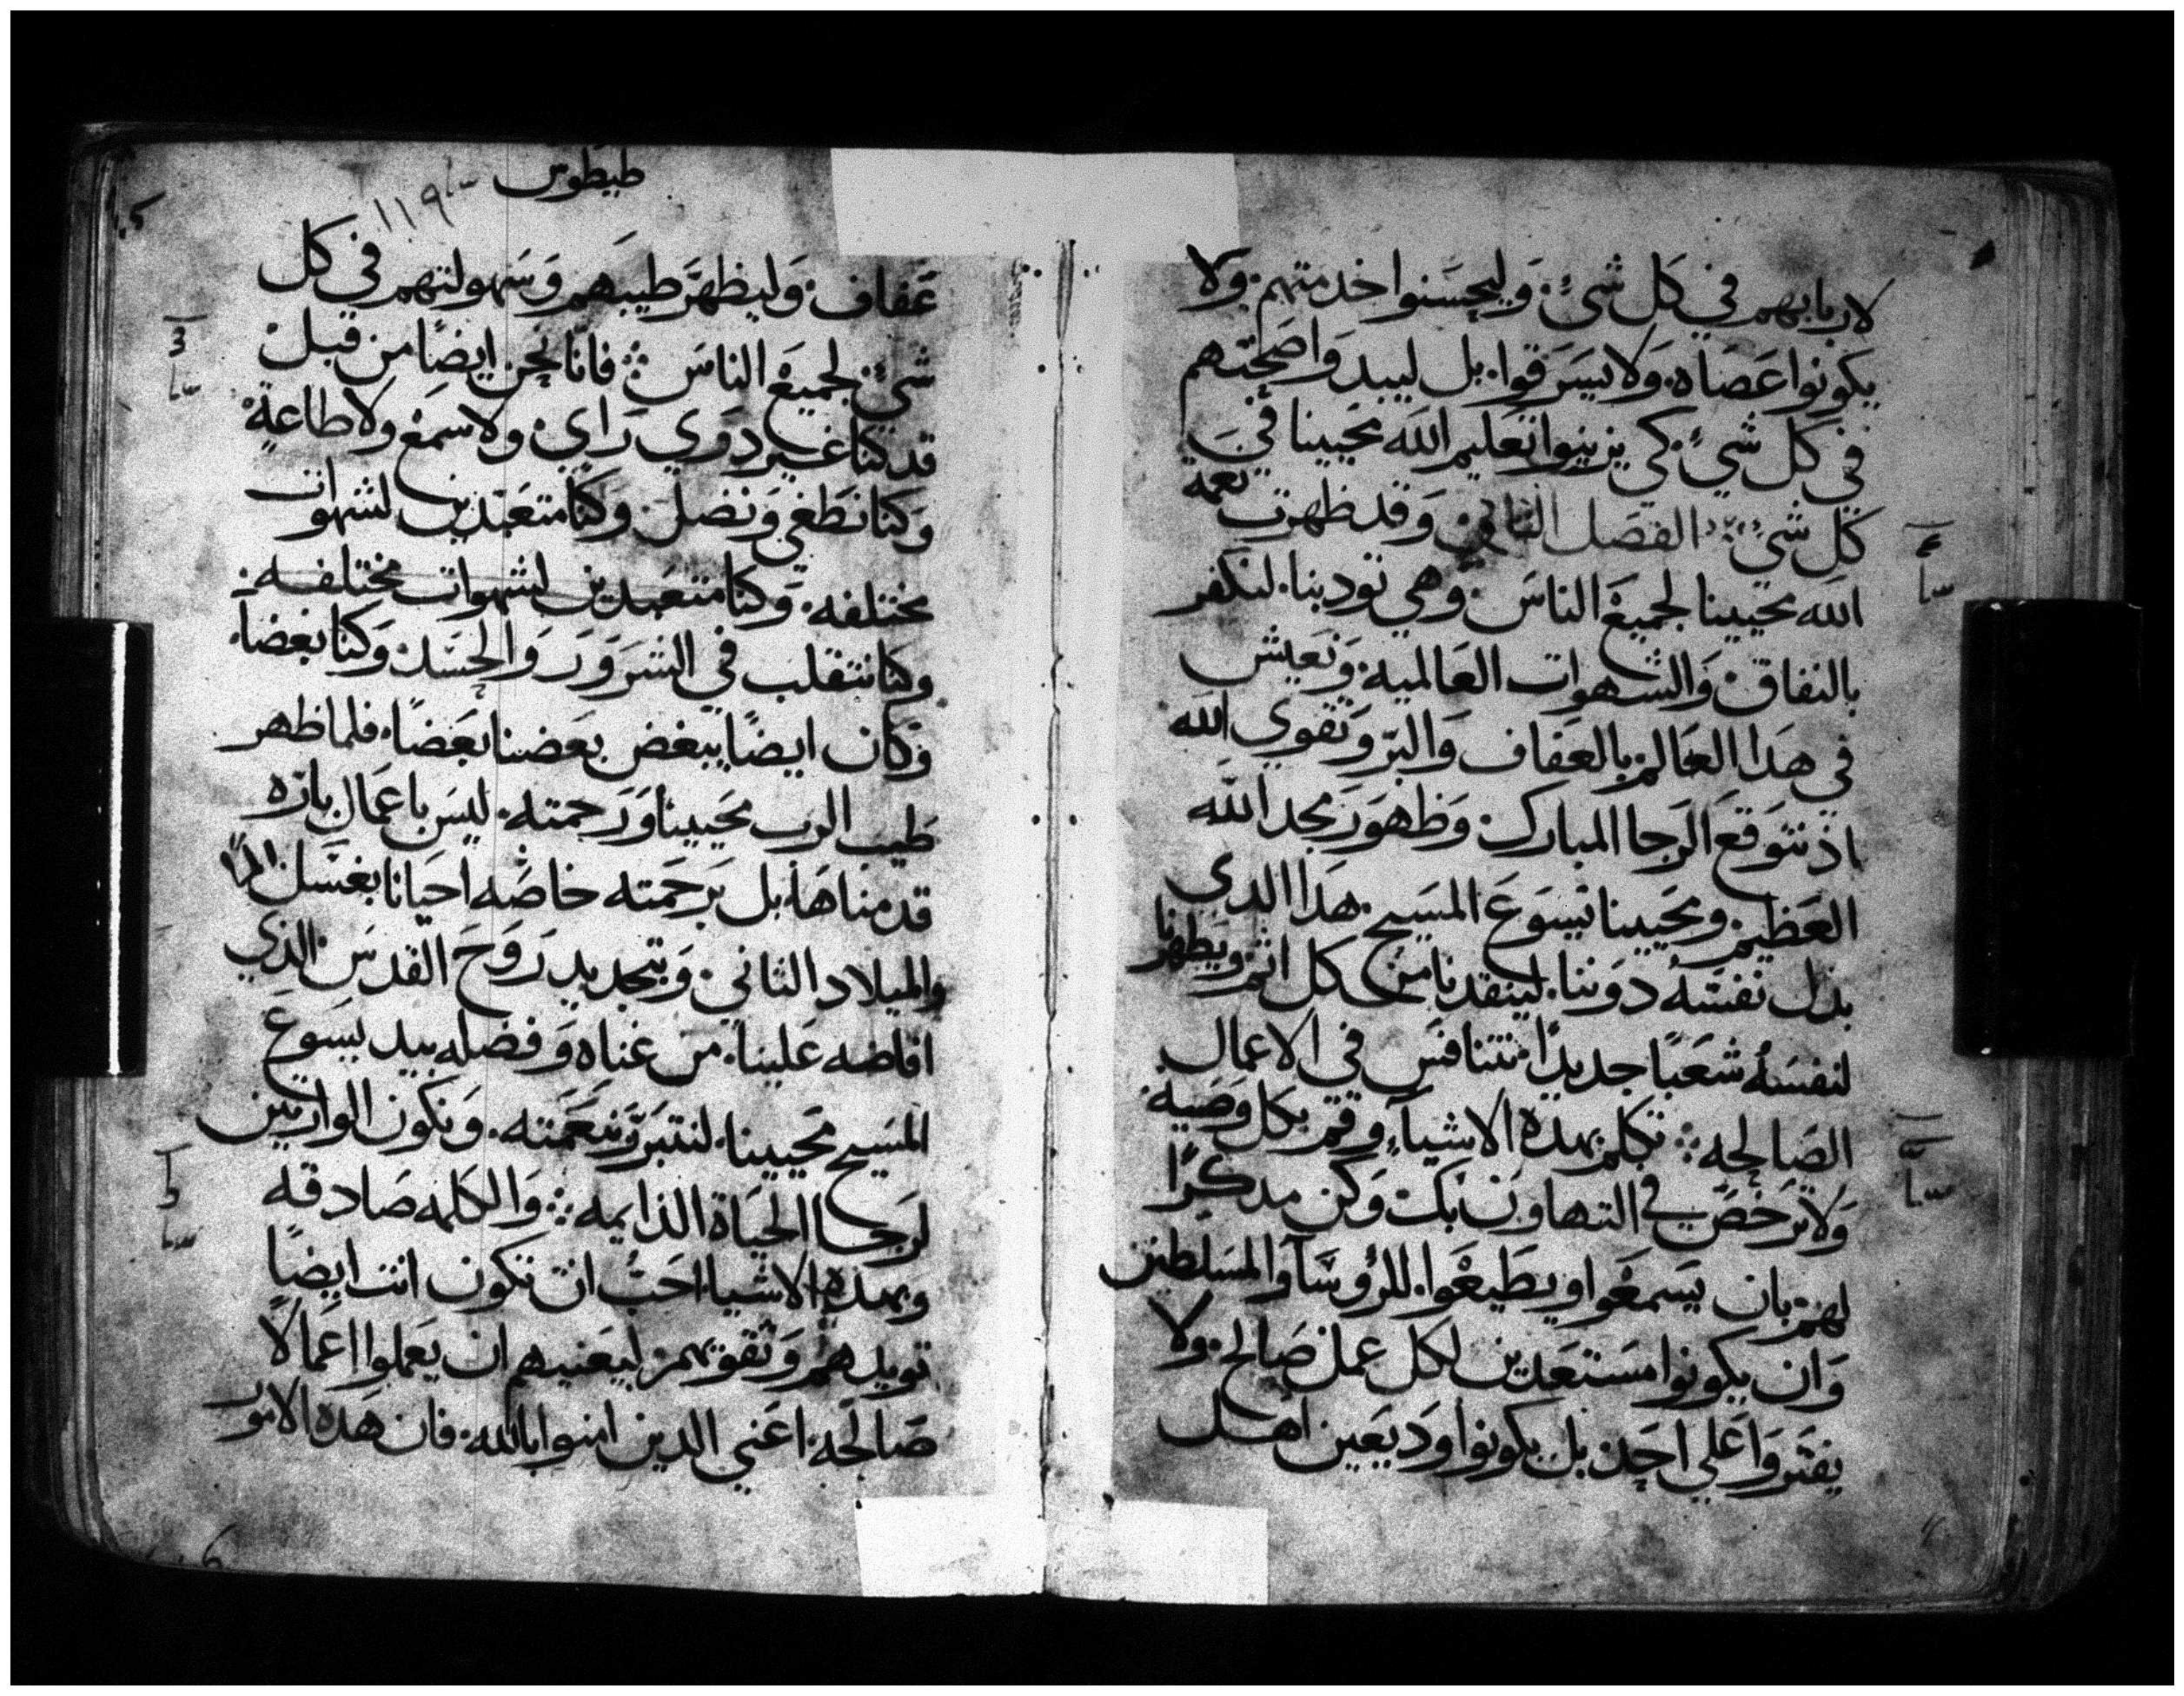 لاربابهم في كل شيء. وليحسنوا خدمتهم. ولا
يكونوا عصاه. ولا يسرقوا. بل ليبدوا صحتهم
في كل شيء. كي يزينوا تعليم الله محيينا في
كل شيء الفصل الثاني وقد ظهرت نعمة
الله محيينا لجميع الناس. وهي تودبنا. لنكفر
بالنفاق. والشهوات العالمية. ونعيش
في هدا العالم بالعفاف والبر وتقوي الله
اذ نتوقع الرجا المبارك. وظهور مجد الله
العظيم. ومحيينا يسوع المسيح. هدا الدي
بدل نفسه دوننا. لينقدنا من كل اثم ويطهرنا
لنفسه شعبا جديدا. نتنافس في الاعمال
الصالحه تكلم بهده الاشياء وقم بكل وصية
ولا ترخص في التهاون بك وكن مدكرا
لهم بان يسمعوا ويطيعوا. للروسا والمسلطين
وان يكونوا مستعدين لكل عمل صالح. ولا
يفتروا علي احد. بل يكونوا وديعين اهل
طيطوس
١١٩
عفاف. وليظهر طيبهم وسهولتهم في كل
شيء لجميع الناس فانا نحن ايضا من قبل
قد كنا غير دوي راي. ولا سمع ولا طاعة
وكنا نطغي ونضل. وكنا متعبدين لشهوات
مختلفه. وكنا متعبدين لشهوات مختلفه.
وكنا نتقلب في الشرور والحسد. وكنا بغضا.
وكان ايضا يبغض بعضنا بعضا. فلما ظهر
طيب الرب محيينا ورحمته. ليس باعمال باره
قدمناها بل برحمته خاصه احيانا بغسل الما
والميلاد الثاني. وبتجديد روح القدس الذي
افاضه علينا. من غناه وفضله بيد يسوع
المسيح محيينا. لنتبرر بنعمته. ونكون الوارثين
لرجا الحياة الدايمه والكلمه صادقه
وبهده الاشيا احب ان تكون انت ايضا
تويدهم وتقويهم. ليعنيهم ان يعملوا اعمالا
صالحة. اعني الدين امنوا بالله. فان هده الامور